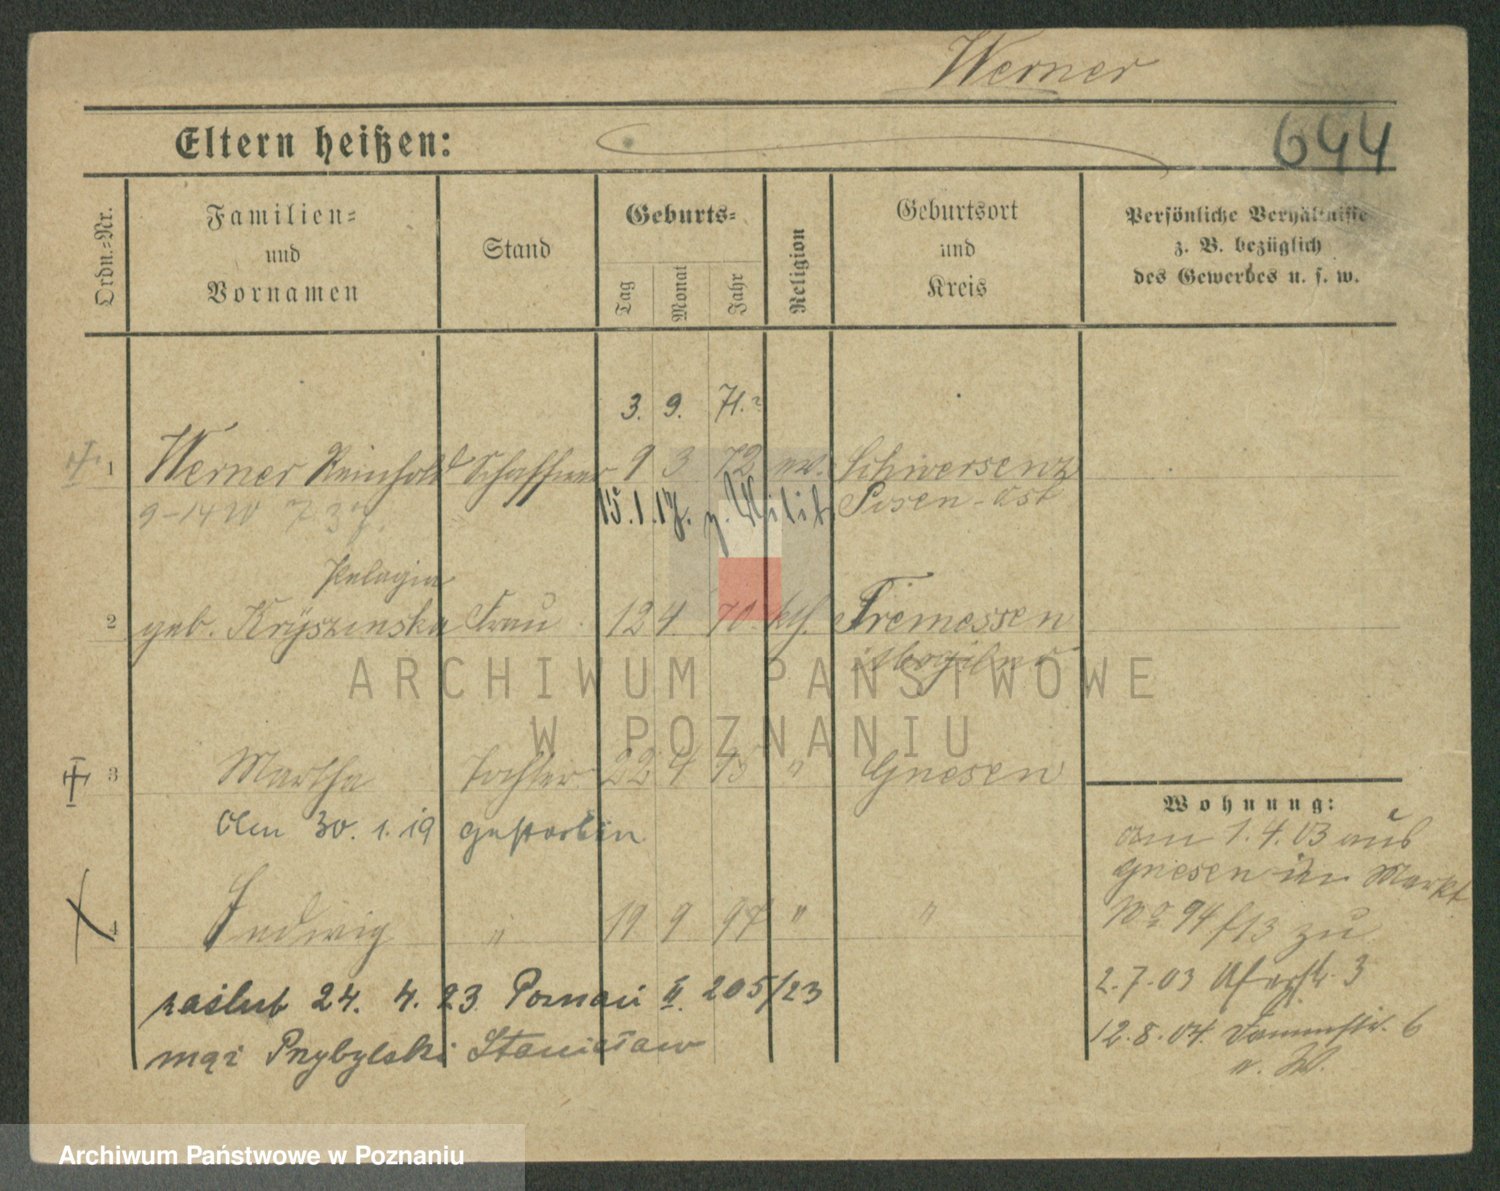 Werner
Eltern heißen:
644
Ordn.-Nr.
Familien-
und
Vornamen
Stand
Geburts-
Tag
Monat
Jahr
Religion
Geburtsort
und
Kreis
Persönliche Verhältnisse
z. B. bezüglich
des Gewerbes u. s. w.
3. 9. 71.
1 Werner Reinhold Schaffner 9 3 72 ev. Schwersenz
15.1.17. Posen-Ost
Pelagia
2 geb. Kryszinska Frau 12 4. 70. kth. Tremessen
Mogilno
3 Martha Tochter 22 4 " Gnesen
Am 30. 1. 19 gestorben
4 Hedwig " 19 9 97 " "
zaślub 24. 4. 23 Poznań II. 205/23
mąż Przybylski Stanisław
Wohnung:
am 1.4.03 aus
Gnesen in Markt
No 94 zu
2.7.03 3
12.8.04. Dammstr. 6
ARCHIWUM PAŃSTWOWE
W POZNANIU
Archiwum Państwowe w Poznaniu